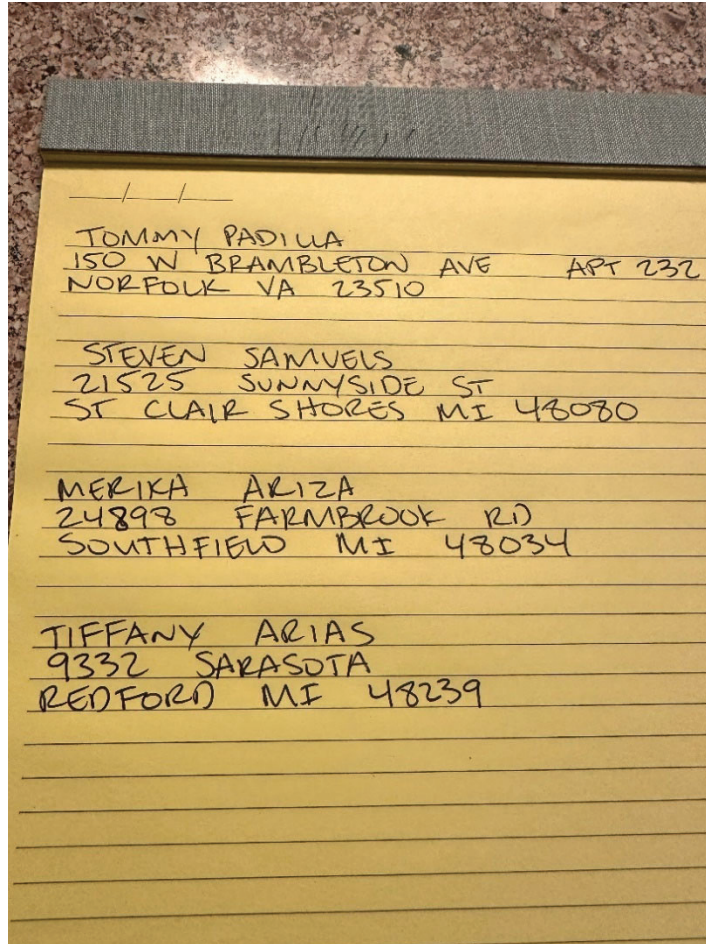 __/__/__
TOMMY PADILLA
150 W BRAMBLETON AVE APT 232
NORFOLK VA 23510
STEVEN SAMUELS
21525 SUNNYSIDE ST
ST CLAIR SHORES MI 48080
MERIKA ARIZA
24898 FARMBROOK RD
SOUTHFIELD MI 48034
TIFFANY ARIAS
9332 SARASOTA
REDFORD MI 48239